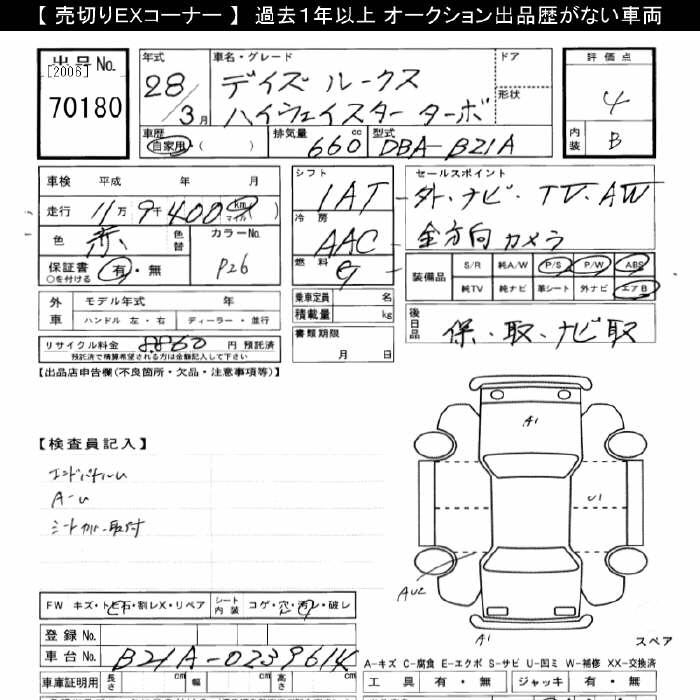 【 売切りEXコーナー 】 過去1年以上 オークション出品歴がない車両
出品No.
[2006]
70180
年式
28/3月
車名・グレード
デイズ ルークス
ハイウェイスター ターボ
ドア
形状
評価点
4
内装
B
車歴
自家用・( )
排気量
660cc
型式
DBA-B21A
車検 平成 年 月
走行 11万9千400 (km マイル)
色 赤
色替
カラーNo.
P26
保証書 有・無
○を付ける
外車
モデル年式 年
ハンドル 左・右
ディーラー・並行
リサイクル料金 8860 円 預託済
預託済で精算希望される方は金額記入して下さい
シフト
IAT
冷房
AAC
燃料
G
乗車定員 名
積載量 kg
書類期限
月 日
セールスポイント
外・ナビ・TV・AW
全方向カメラ
装備品
S/R 純A/W P/S P/W ABS
純TV 純ナビ 革シート 外ナビ エアB
後日品
保・取・ナビ取
【出品店申告欄(不良箇所・欠品・注意事項等)】
【検査員記入】
A-U
シートカバー取付
A1
U1
AU2
A1
スペア
FW キズ・トビ石・割レX・リペア
シート内装
コゲ・穴・汚レ・破レ
登録No.
車台No.
B21A-0239614
A-キズ C-腐食 E-エクボ S-サビ U-凹ミ W-補修 XX-交換済
車庫証明用
長さ cm
幅 cm
高さ cm
工具 有・無
ジャッキ 有・無